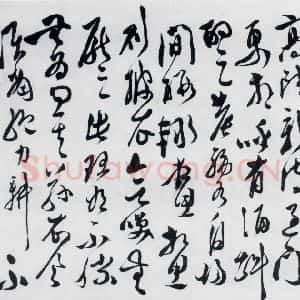 高賦新詩過門
更相呼有酒斟
酌之農務各自歸
間暇輒相思
則披衣言笑無
厭時此理將不勝
無為忽去茲衣食
力耕不
Shufawang.CN